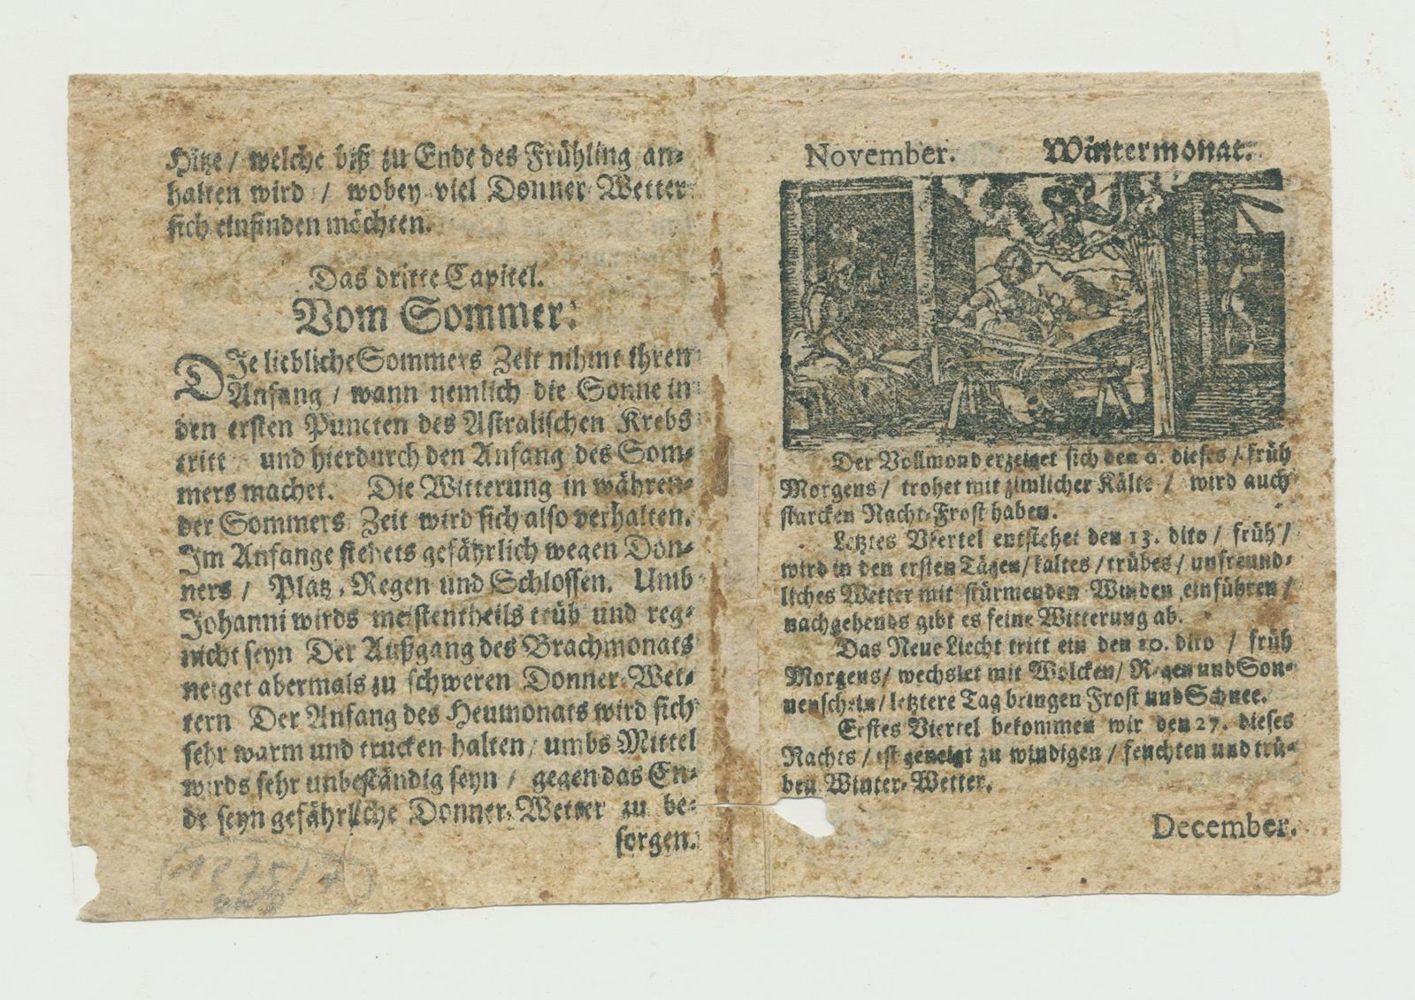 Hitze / welche biß zu Ende des Frühling an-
halten wird / wobey viel Donner-Wetter
sich einfinden möchten.
Das dritte Capitel.
Vom Sommer.
DJe liebliche Sommers Zeit nihmt ihren
Anfang / wann nemlich die Sonne in
den ersten Puncten des Astralischen Krebs
tritt und hierdurch den Anfang des Som-
mers machet. Die Witterung in währen-
der Sommers Zeit wird sich also verhalten.
Im Anfange stehets gefährlich wegen Don-
ners / Platz-Regen und Schlossen. Umb
Johanni wirds meistentheils trüb und reg-
nicht seyn Der Außgang des Brachmonats
neiget abermals zu schweren Donner-Wet-
tern Der Anfang des Heumonats wird sich
sehr warm und trucken halten / umbs Mittel
wirds sehr unbeständig seyn / gegen das En-
de seyn gefährliche Donner-Wetter zu be-
sorgen.
November. Wintermonat.
Der Vollmond erzeiget sich den dieses / früh
Morgens / trohet mit zimlicher Kälte / wird auch
starcken Nacht-Frost haben.
Letztes Viertel entstehet den 13. dito / früh /
wird in den ersten Tägen / kaltes / trübes / unfreund-
liches Wetter mit stürmenden Winden einführen /
nachgehends gibt es feine Witterung ab.
Das Neue Liecht tritt ein den 20. dito / früh
Morgens / wechslet mit Wolcken / Regen und Son-
nenschein / letztere Tag bringen Frost und Schnee.
Erstes Viertel bekommen wir den 27. dieses
Nachts / ist geneigt zu windigen / feuchten und trü-
ben Winter-Wetter.
December.